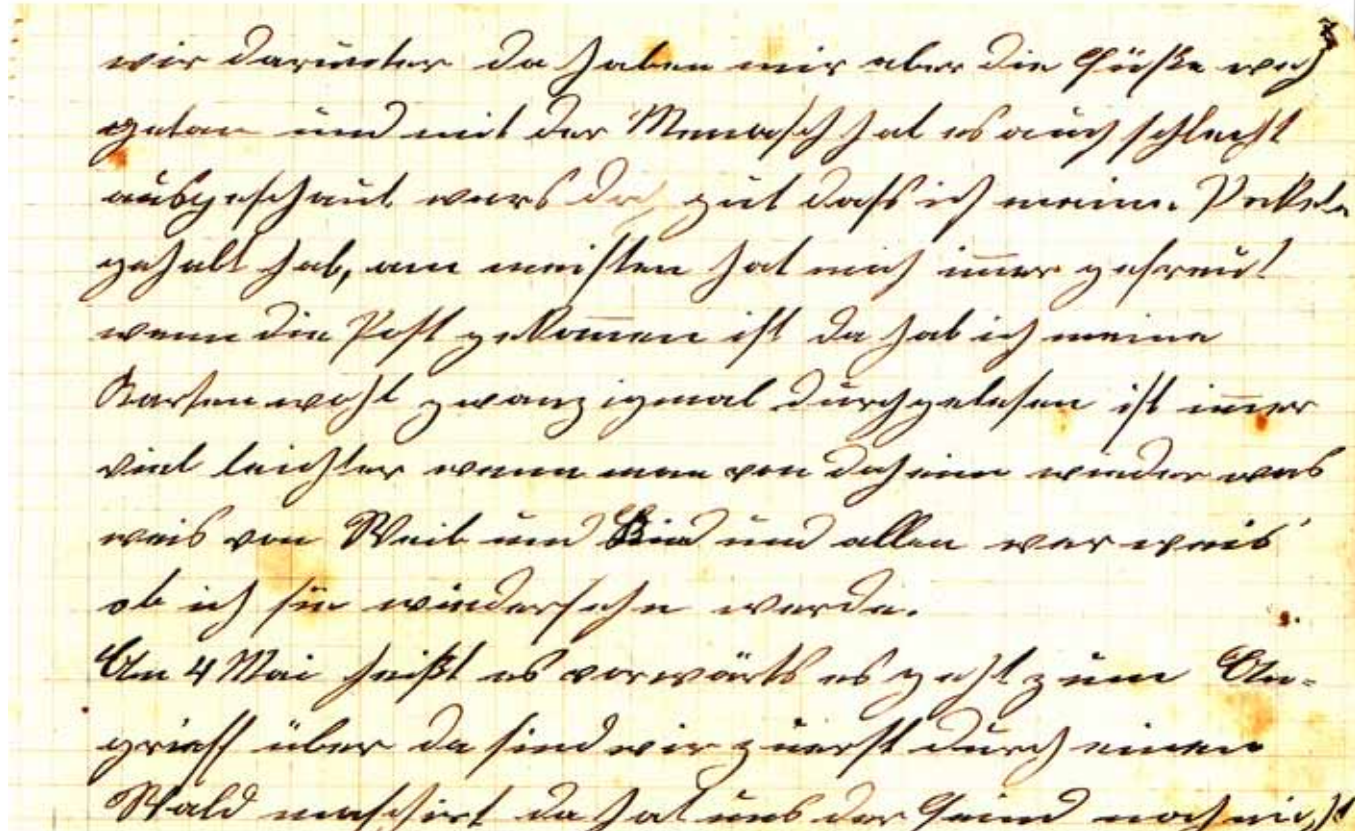 wir darunter da haben mir aber die Füße weh
getan und mit der Menasch hat es auch schlecht
ausgeschaut wars doch gut dass ich meine Pekeln
gehabt hab, am meisten hat mich im̅er gefreut
wenn die Post gekom̅en ist da hab ich meine
Karten wohl zwanzigmal durchgelesen ist im̅er
viel leichter wenn man von daheim wieder was
weis von Weib und Kind und allen wer weis
ob ich sie wiedersehn werde.
Am 4 Mai heißt es vorwärts es geht zum An-
grieff über da sind wir zuerst durch einen
Wald maschirt da hat uns der Feind noch nicht